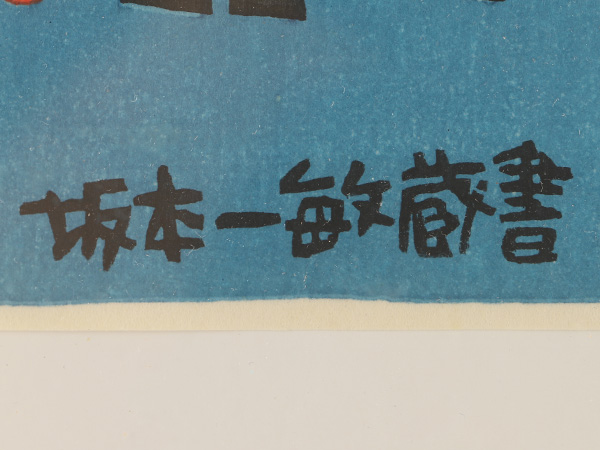 坂本一敏蔵書